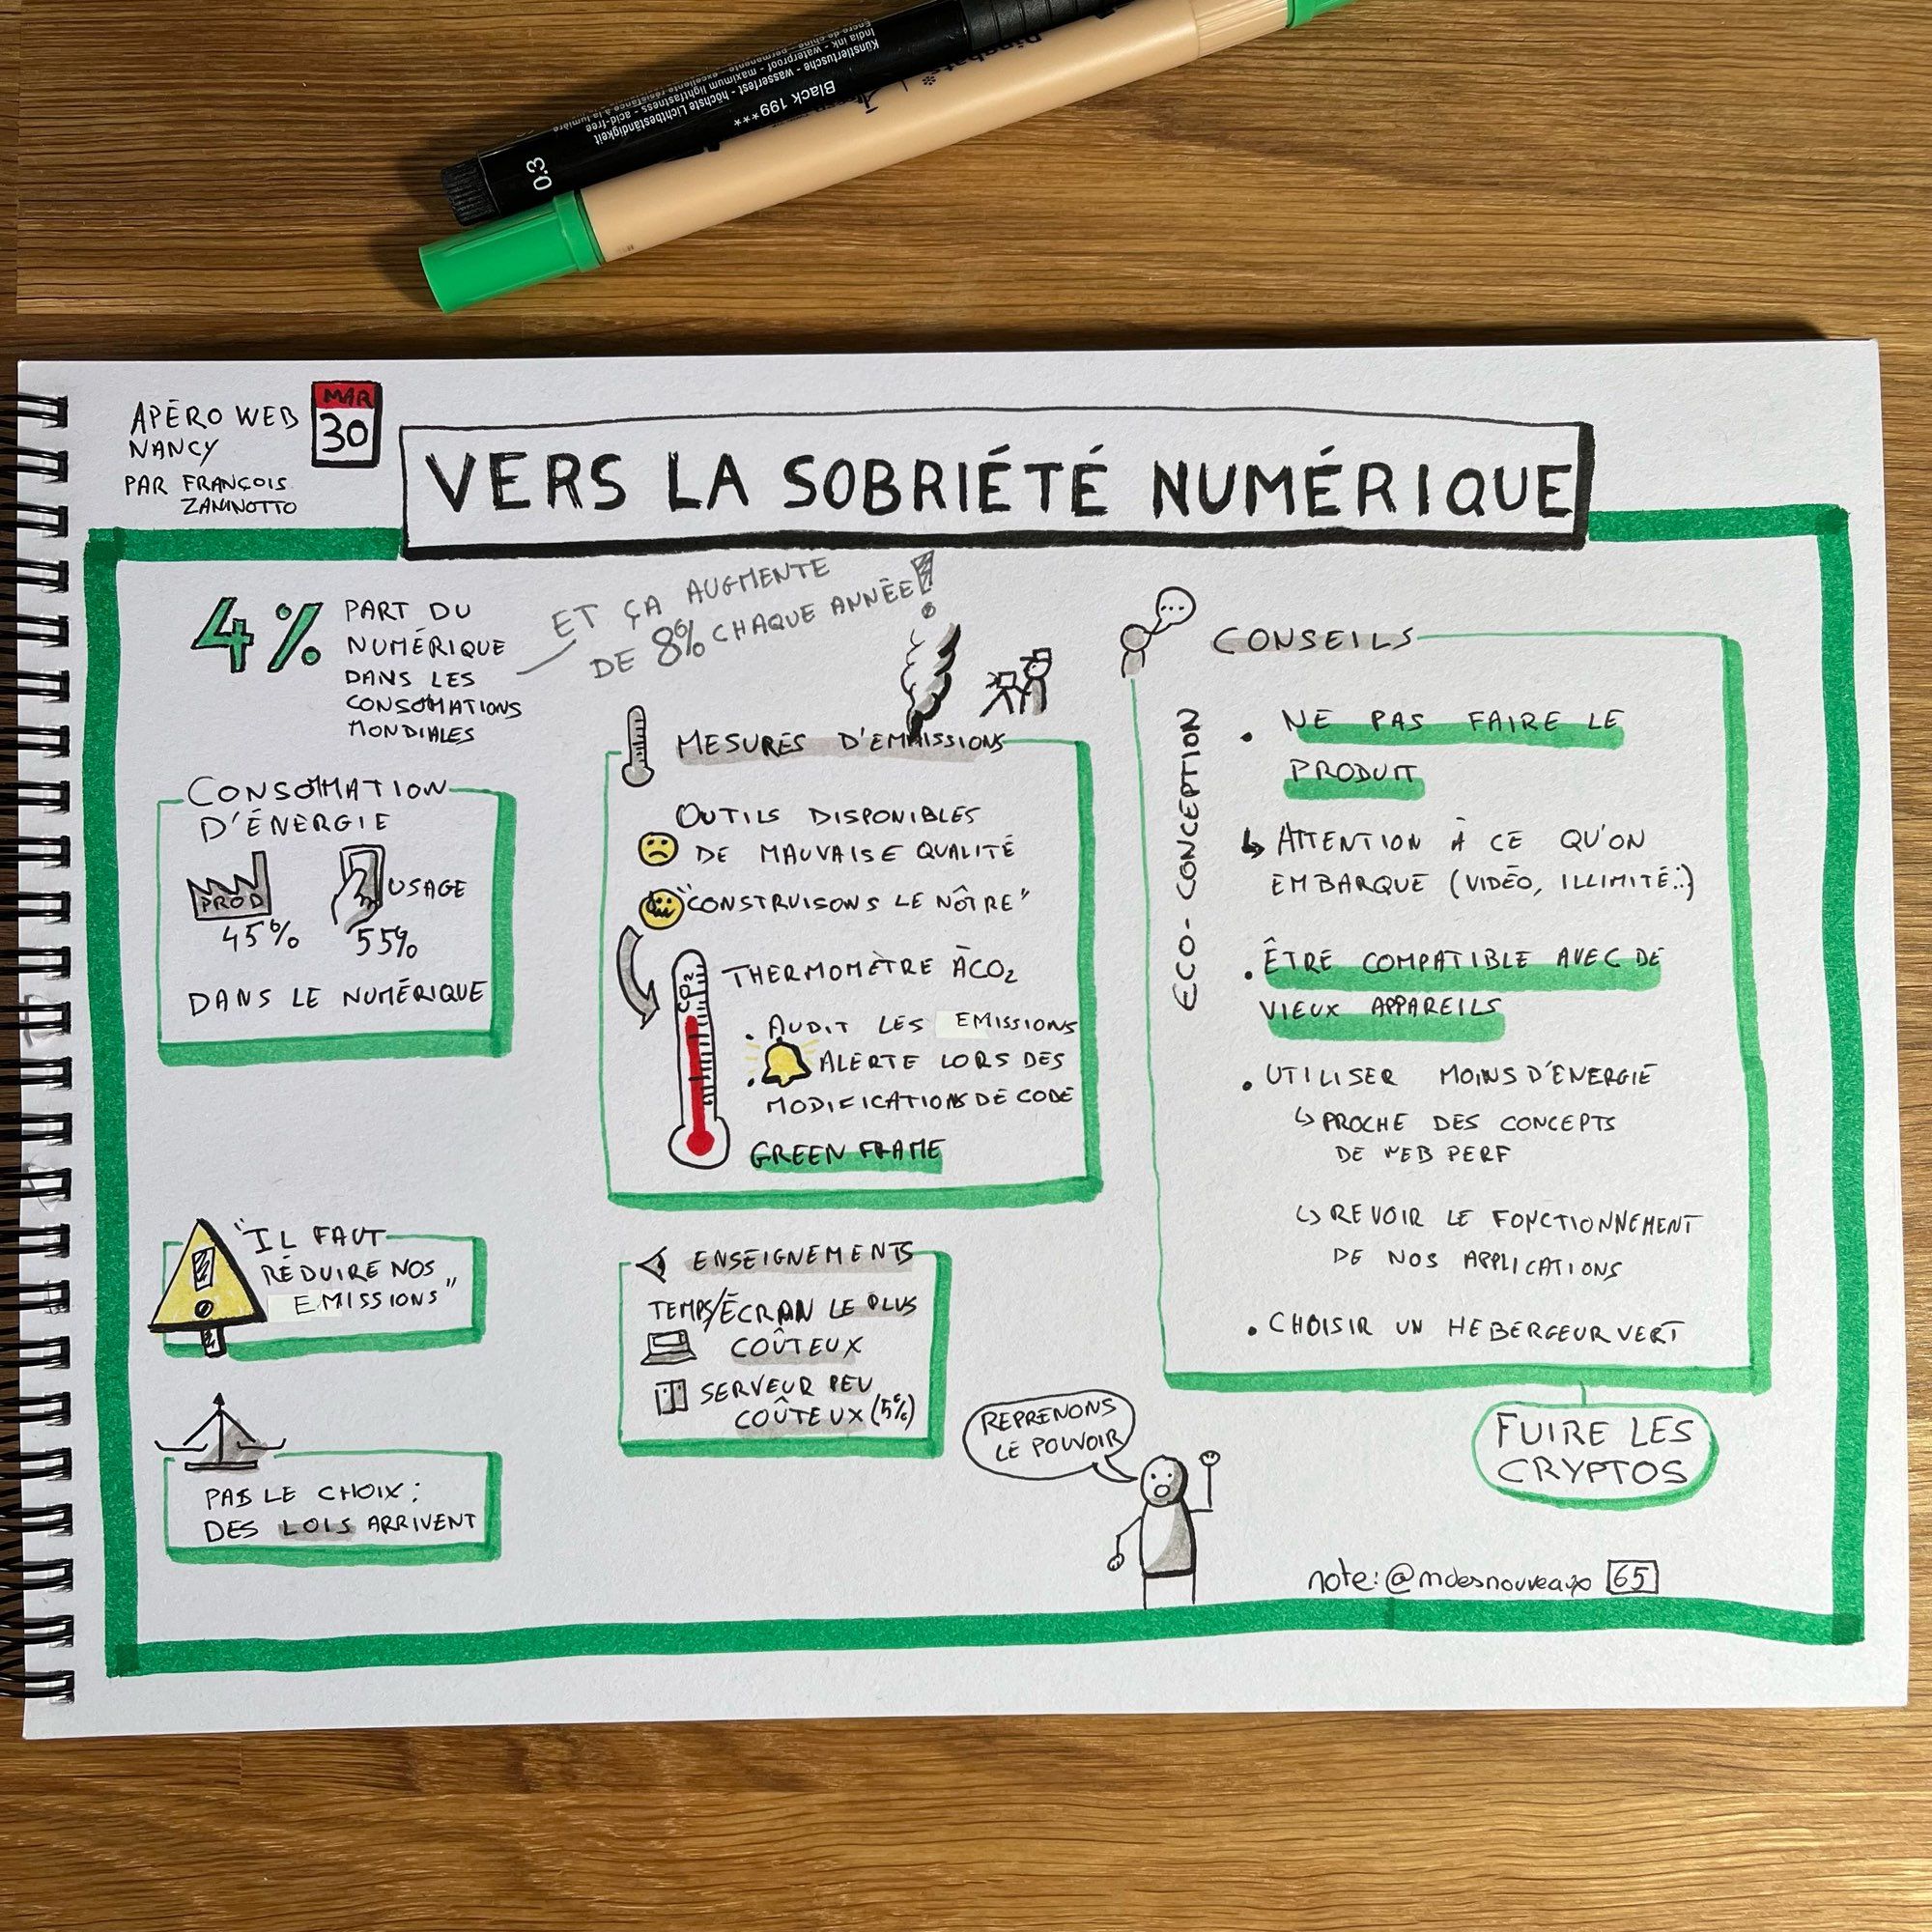 0.3
Black 199***
Künstlertusche - wasserfest - höchste Lichtbeständigkeit
India ink - waterproof - maximum lightfastness - acid-free
APÉRO WEB
NANCY
PAR FRANÇOIS
ZANINOTTO
MAR
30
VERS LA SOBRIÉTÉ NUMÉRIQUE
4%
PART DU
NUMÉRIQUE
DANS LES
CONSOMATIONS
MONDIALES
ET ÇA AUGMENTE
DE 8% CHAQUE ANNÉE!
CONSOMMATION
D'ÉNERGIE
PROD
45%
USAGE
55%
DANS LE NUMÉRIQUE
"IL FAUT
RÉDUIRE NOS
EMISSIONS"
PAS LE CHOIX :
DES LOIS ARRIVENT
MESURES D'EMMISSIONS
OUTILS DISPONIBLES
DE MAUVAISE QUALITÉ
"CONSTRUISONS LE NÔTRE"
CO2
THERMOMÈTRE À CO2
. AUDIT LES EMISSIONS
. ALERTE LORS DES
MODIFICATIONS DE CODE
GREEN FRAME
ENSEIGNEMENTS
TEMPS/ÉCRAN LE PLUS
COÛTEUX
SERVEUR PEU
COÛTEUX (5%)
REPRENONS
LE POUVOIR
...
CONSEILS
ECO-CONCEPTION
. NE PAS FAIRE LE
PRODUIT
↳ ATTENTION À CE QU'ON
EMBARQUE (VIDÉO, ILLIMITÉ...)
. ÊTRE COMPATIBLE AVEC DE
VIEUX APPAREILS
. UTILISER MOINS D'ÉNERGIE
↳ PROCHE DES CONCEPTS
DE WEB PERF
↳ REVOIR LE FONCTIONNEMENT
DE NOS APPLICATIONS
. CHOISIR UN HEBERGEUR VERT
FUIRE LES
CRYPTOS
note: @mdesnouveaux 65